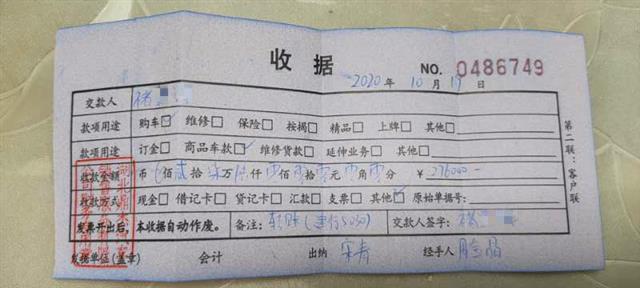 收据 NO. 0486749
2020 年 10 月 19 日
交款人
款项用途 购车☑ 维修□ 保险□ 按揭□ 精品□ 上牌□ 其他□
款项用途 订金□ 商品车款☑ 维修货款□ 延伸业务□ 其他□
收款金额 币 佰 贰 拾 柒 万 仟 零 佰 零 拾 零 元 零 角 零 分 ￥ 276000-
收款方式 现金□ 借记卡□ 贷记卡□ 汇款□ 支票□ 其他☑ 原始单据号:
发票开出后,本收据自动作废。 备注: 转账(建行5050) 交款人签字:
发据单位(盖章) 会计 出纳 宋青 经手人
第二联:客户联